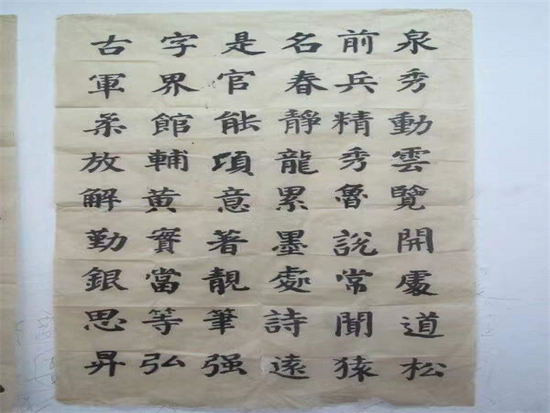 泉秀動雲覽開處道松
前兵精秀魯說常聞猿
名春靜龍累墨處詩遠
是官能項意著靚筆强
字界館輔黄實當等弘
古軍柔放解勤銀思昇